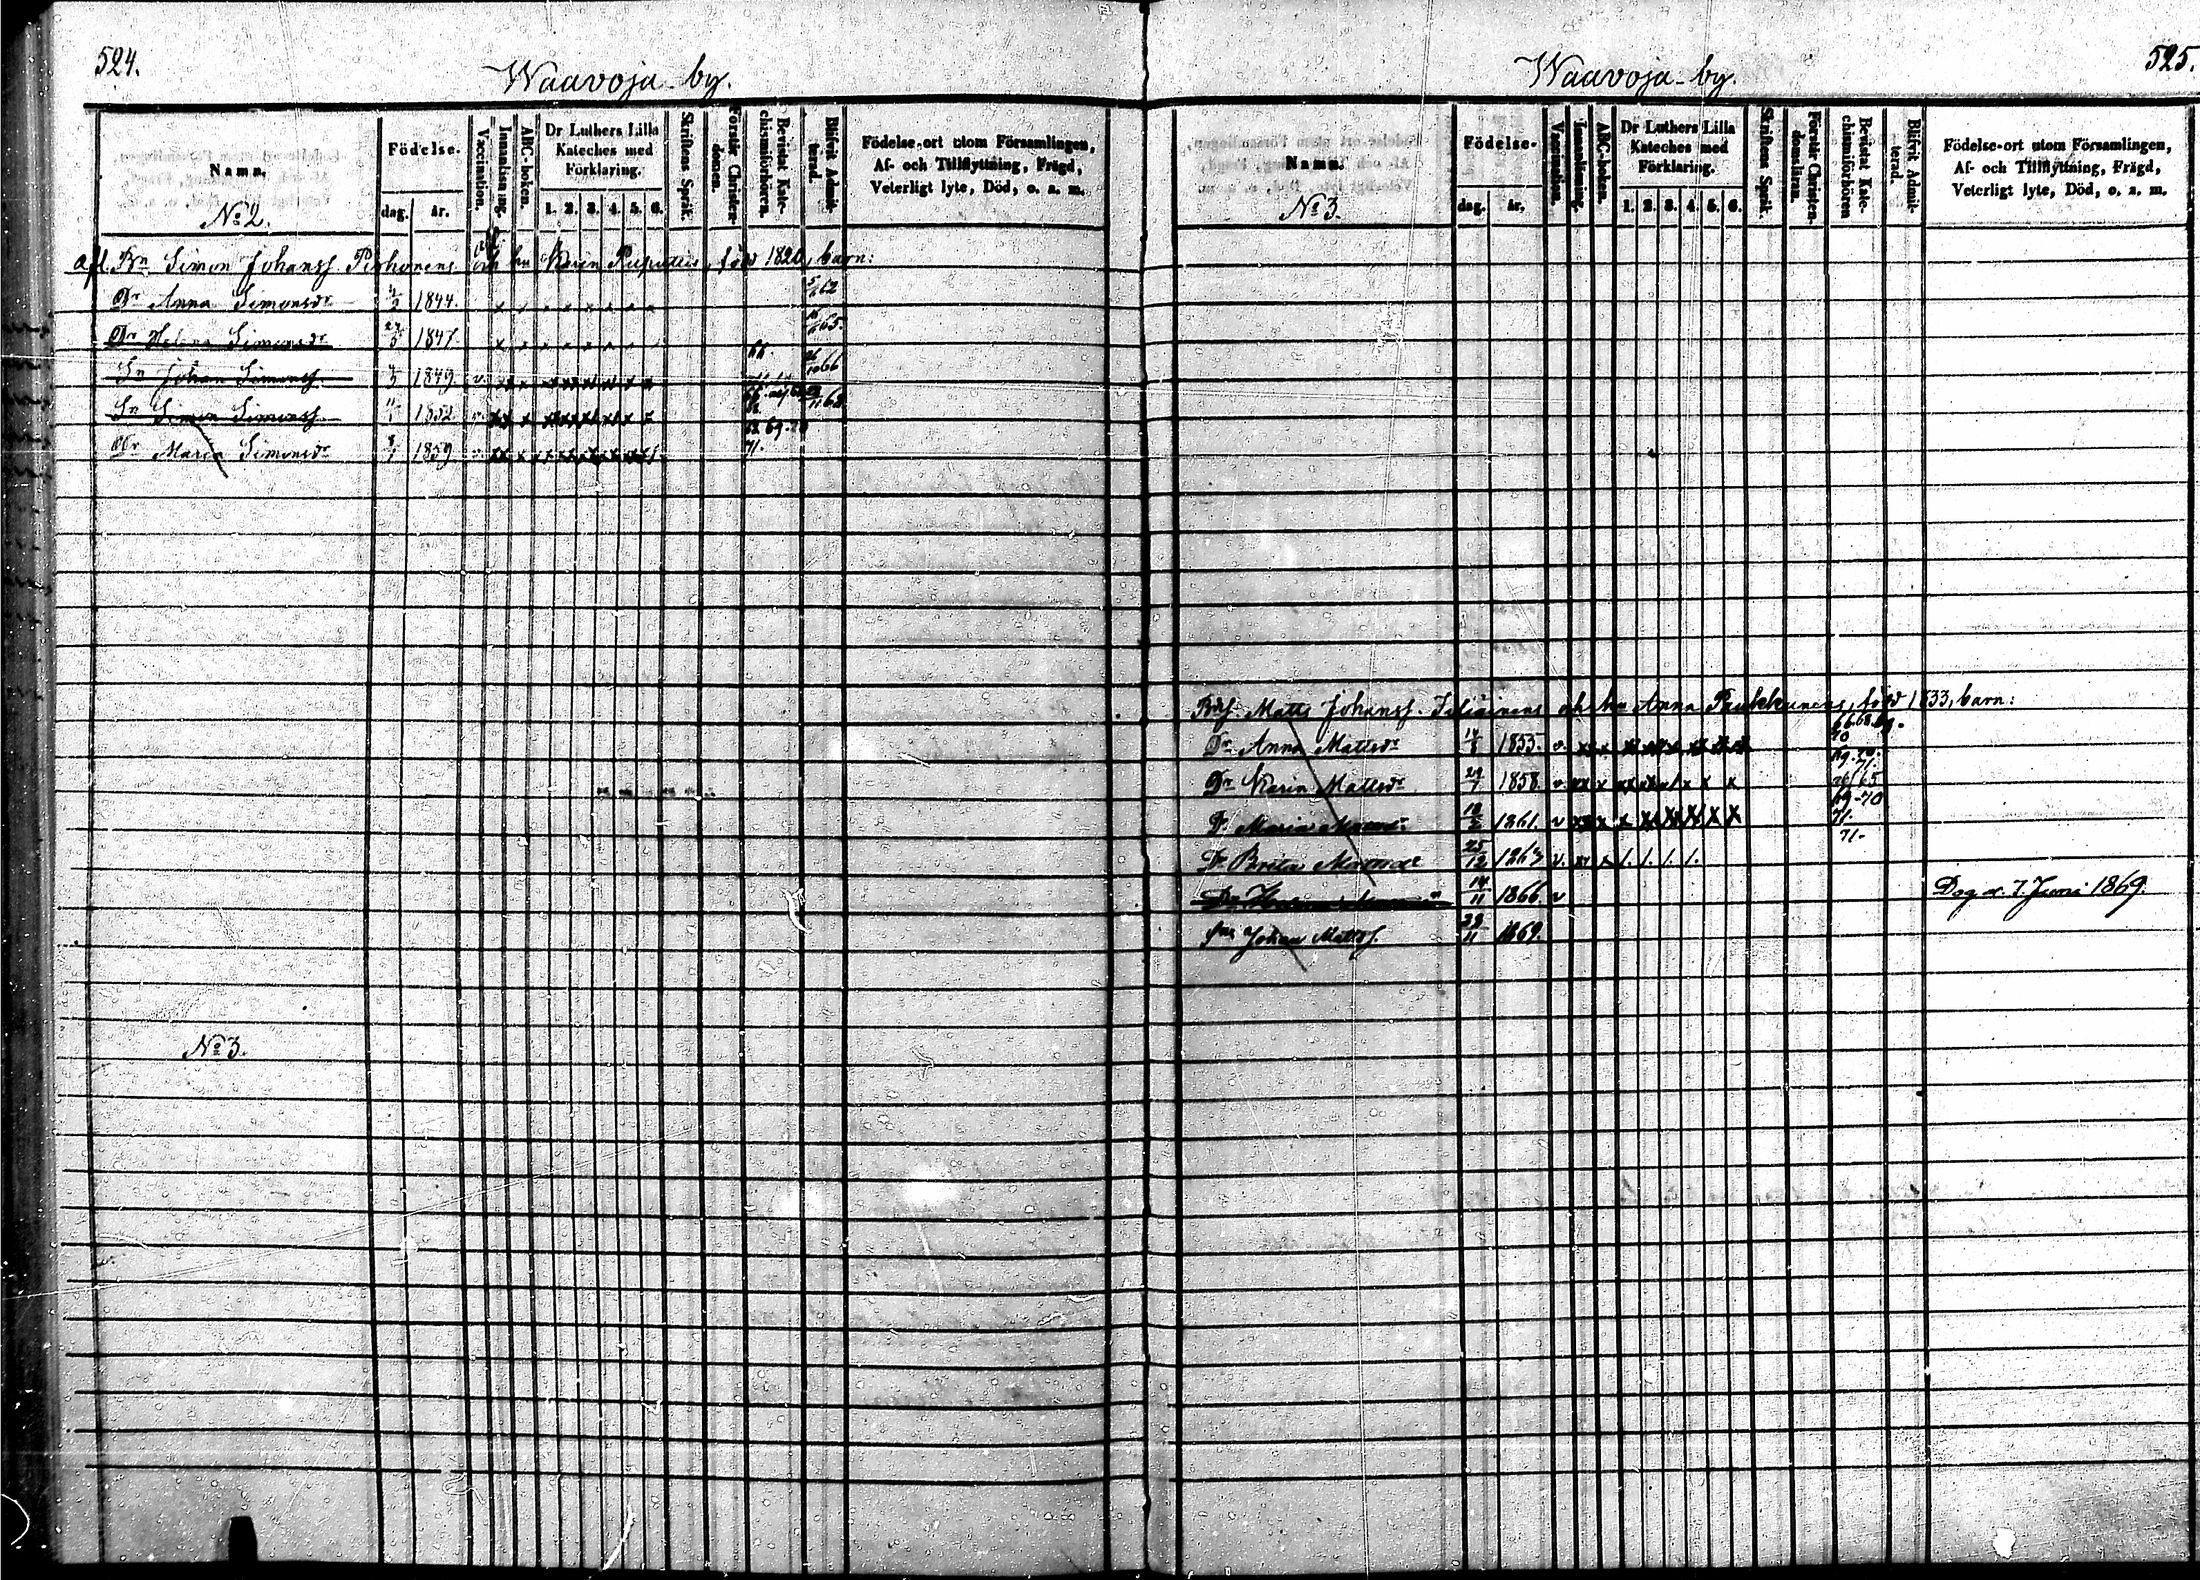 524.
Waavoja by.
Namn.
No 2.
Födelse.
dag. år.
Vaccination.
Innanläsning.
ABC-boken.
Dr Luthers Lilla Kateches med Förklaring.
1. 2. 3. 4. 5. 6.
Skriftens Språk.
Förstår Christendomen.
Bevistat Katechismiförhören.
Blifvit Admitterad.
Födelse-ort utom Församlingen,
Af- och Tillflyttning, Frägd,
Veterligt lyte, Död, o. a. m.
afl. Bn Simon Johansf. och hu Karin född 1820, barn:
Dr Anna Simonsdr 1844. 62
Dr Helena Simonsdr 1847. 65.
Sn Johan Simonsf. 1849. v 66. 66
Sn Simon Simonsf. 1852. v 68
Dr Maria Simonsdr 1859. v 68. 69. 70 71.
No 3.
525.
Waavoja by.
Namn.
No 3.
Födelse.
dag. år.
Vaccination.
Innanläsning.
ABC-boken.
Dr Luthers Lilla Kateches med Förklaring.
1. 2. 3. 4. 5. 6.
Skriftens Språk.
Förstår Christendomsläran.
Bevistat Katechismiförhören
Blifvit Admitterad.
Födelse-ort utom Församlingen,
Af- och Tillflyttning, Frägd,
Veterligt lyte, Död, o. a. m.
Matts Johansf. och hu Anna född 1833, barn:
Dr Anna Mattsdr 1855. v 66. 68. 69. 70
Dr Karin Mattsdr 29/7 1858. v 69. 70. 71.
Dr Maria 18/2 1861. v 69-70 71.
Dr Brita 25/12 1863 v. 1. 1. 1. 1. 71.
Dr 14/11 1866. v Dog d. 7 Juni 1869.
Johan Mattsf. 23/11 1869.